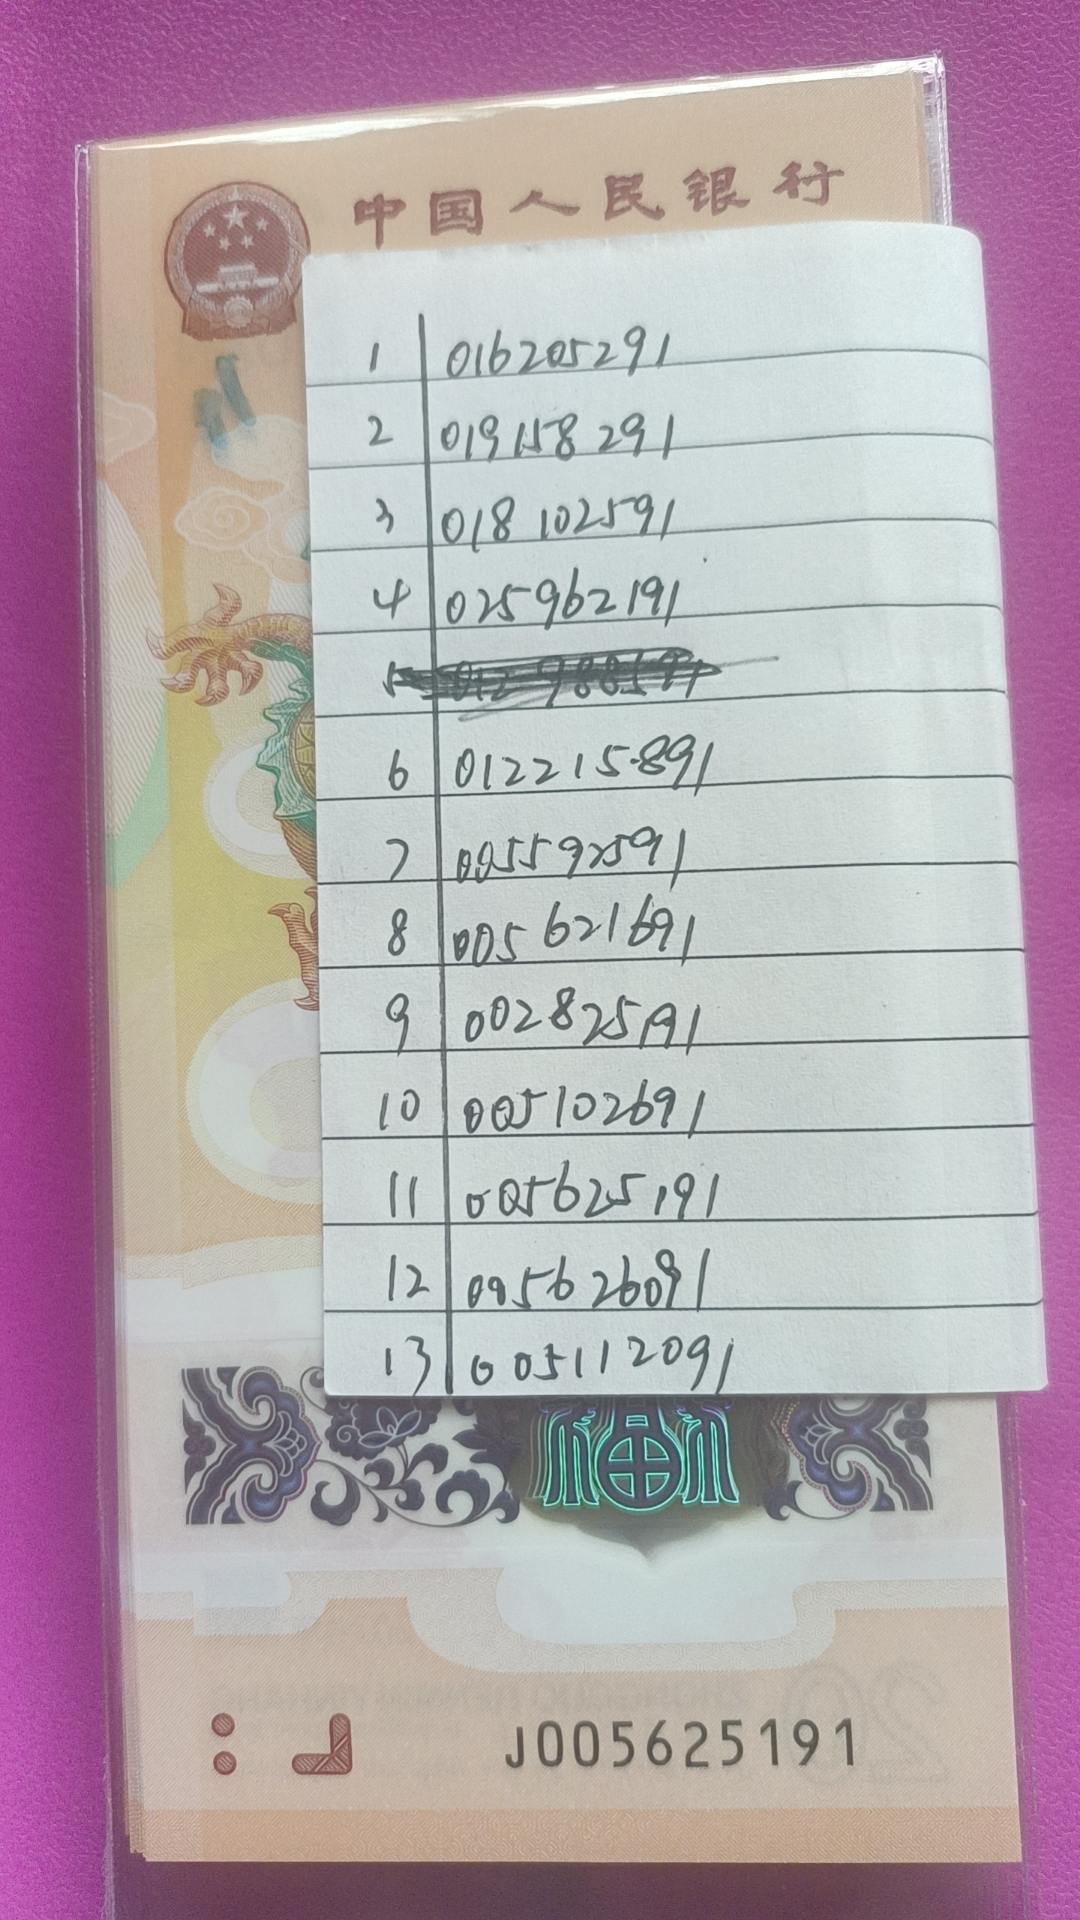 中国人民银行
1 016205291
2 019158291
3 018102591
4 025962191
6 012215891
7 005592591
8 005621691
9 002825191
10 005102691
11 005625191
12 005626091
13 005112091
J005625191